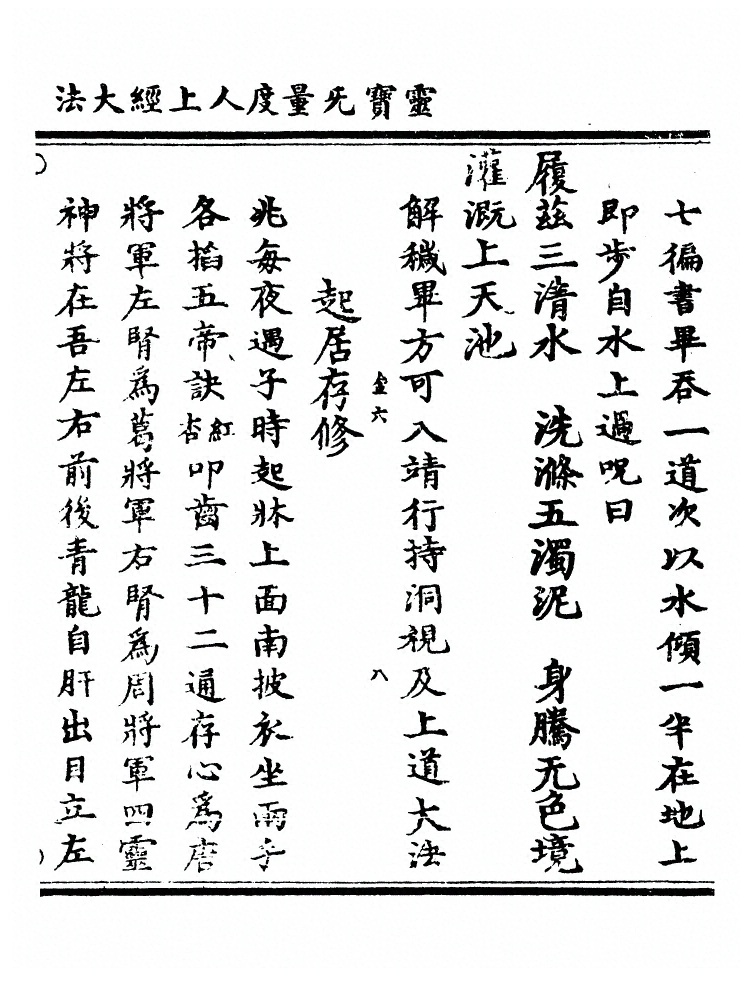 靈寶旡量度人上經大法
七徧書畢吞一道次以水傾一半在地上
即步自水上過呪曰
履茲三清水　洗滌五濁泥　身騰无色境
灌溉上天池
解穢畢方可入靖行持洞視及上道大法
金六　八
起居存修
兆每夜遇子時起牀上面南披衣坐兩手
各掐五帝訣紅杏叩齒三十二通存心爲唐
將軍左腎爲葛將軍右腎爲周將軍四靈
神將在吾左右前後青龍自肝出目立左